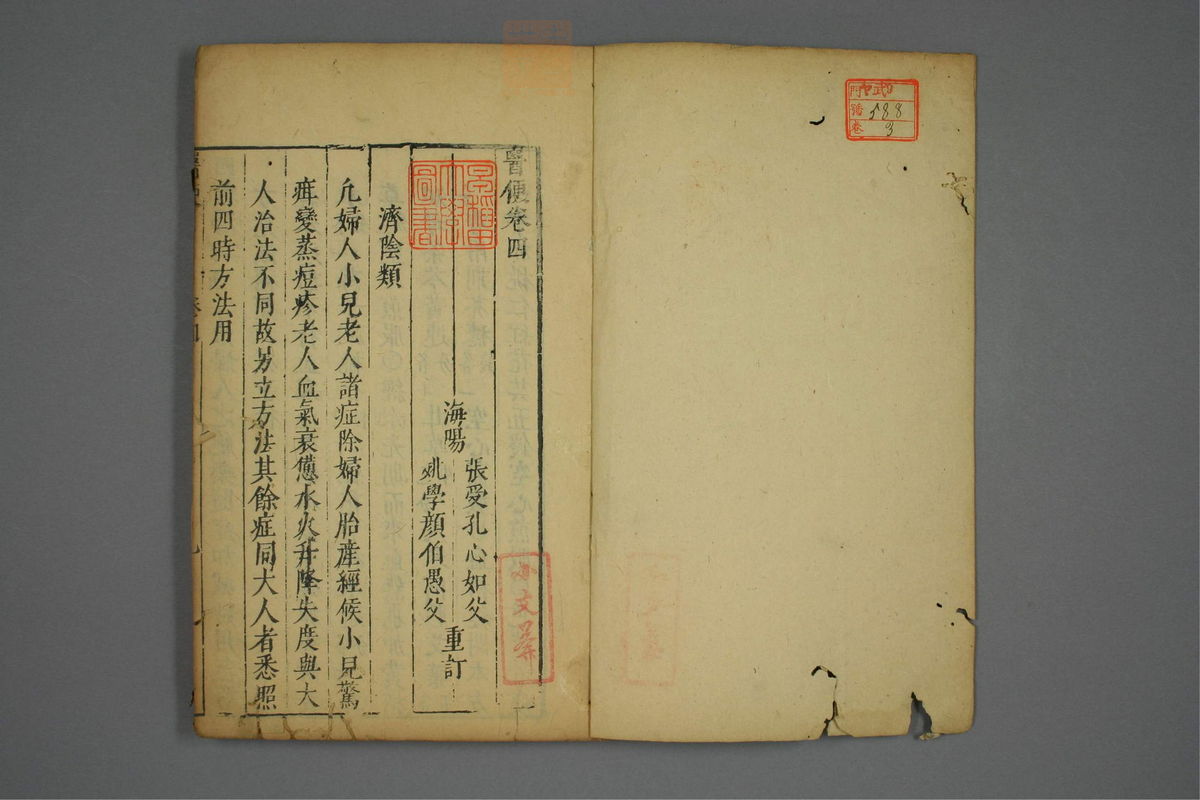 門 ヤ武9
號 588
卷 3
醫便卷四
早稻田
大學
圖書
海陽
張受孔心如父
姚學顔伯愚父
重訂
濟陰類
凢婦人小兒老人諸症除婦人胎產經候小兒驚
疳變蒸痘疹老人血氣衰憊水火升降失度與大
人治法不同故另立方法其餘症同大人者悉照
前四時方法用